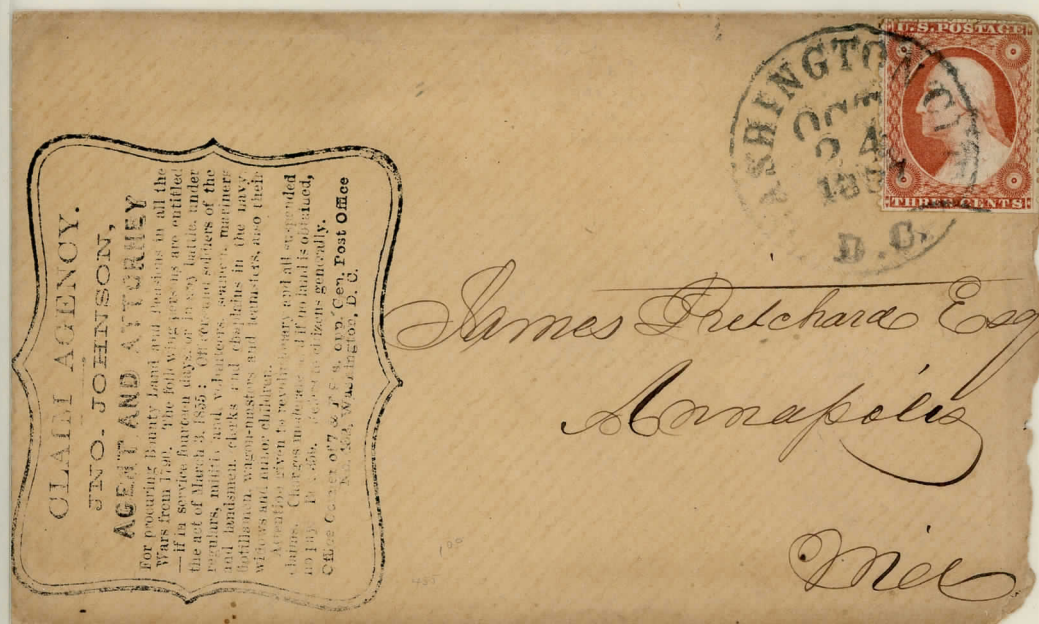 CLAIM AGENCY.
JNO. JOHNSON,
AGENT AND ATTORNEY
For procuring Bounty Land and Pensions in all the
Wars from 1790. The following persons are entitled
—if in service fourteen days, or in any battle, under
the act of March 3, 1855: Officers and soldiers of the
regulars, militia and volunteers, seamen, mariners
and landsmen, clerks and chaplains in the navy,
flotillamen, wagon-masters and teamsters, also their
widows and minor children.
Attention given to revolutionary and all suspended
claims. Charges moderate if no land is obtained,
no pay. to citizens generally.
Office Corner of 7 & F opp. Gen. Post Office
Washington, D. C.
WASHINGTON CITY
OCT
24
D. C.
U.S. POSTAGE
THREE CENTS
James Pritchard Esq
Annapolis
Md